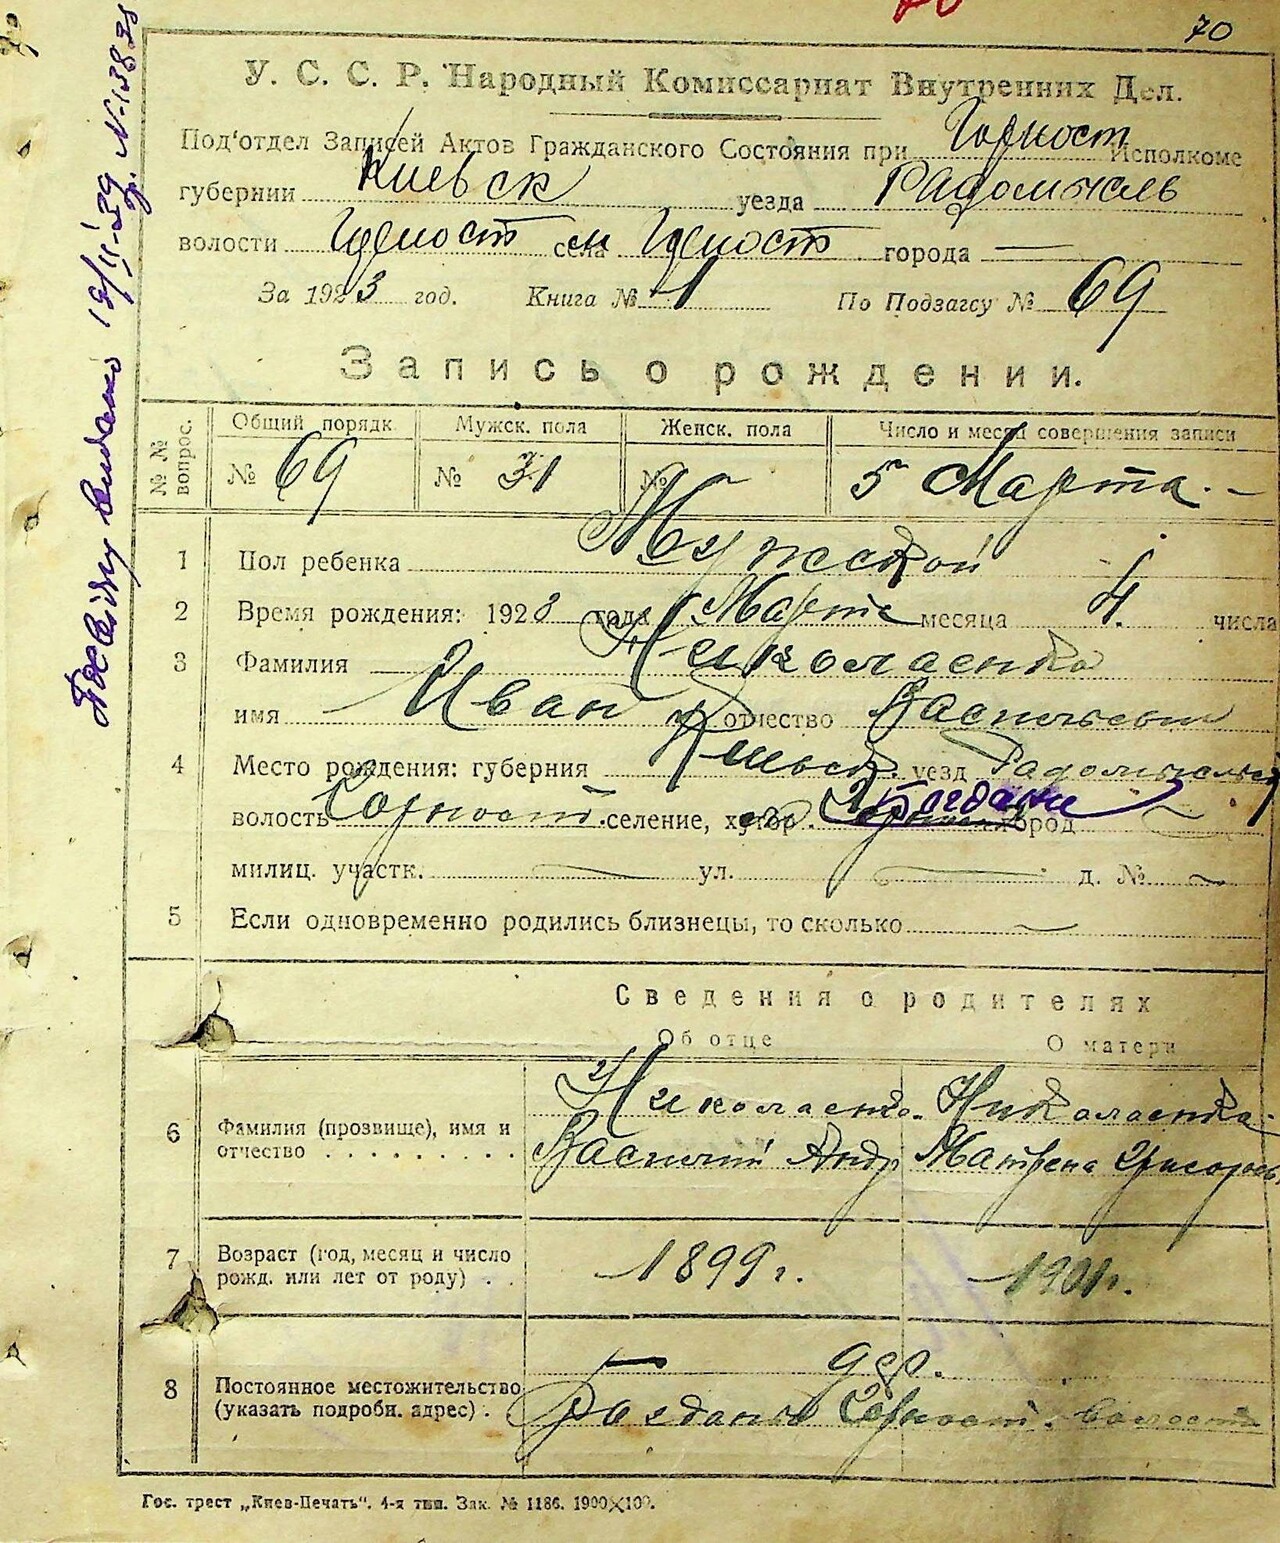 70
У. С. С. Р. Народный Комиссариат Внутренних Дел.
Под'отдел Записей Актов Гражданского Состояния при Горност Исполкоме
губернии Киевск уезда Радомысль
волости Горност села м Горност города —
За 1923 год. Книга № 1 По Подзагсу № 69
Запись о рождении.
№№ вопрос. Общий порядк. Мужск. пола Женск. пола Число и месяц совершения записи
№ 69 № 31 № — 5 Марта. –
1 Пол ребенка Мужской
2 Время рождения: 1923 года Марта месяца 4. числа
3 Фамилия Николаенко
имя Иван отчество Васильевич
4 Место рождения: губерния Киевск. уезд Радомысльск
волость Горност. селение, хутор Богданы город —
милиц. участк. — ул. — д. № —
5 Если одновременно родились близнецы, то сколько —
Сведения о родителях
Об отце О матери
6 Фамилия (прозвище), имя и отчество Николаенко Василий Андр Николаенко Матрена Григорьев
7 Возраст (год, месяц и число рожд. или лет от роду) 1899 г. 1901 г.
8 Постоянное местожительство (указать подробн. адрес) дер. Богданы Горност. волости
Гос. трест „Киев-Печать". 4-я тип. Зак. № 1186. 1900×100.